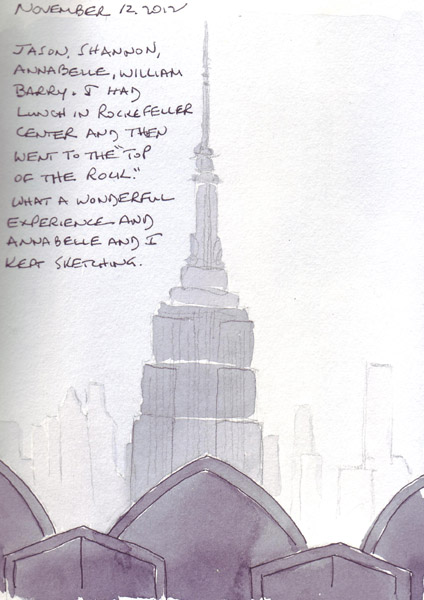 NOVEMBER 12, 2012
JASON, SHANNON,
ANNABELLE, WILLIAM
BARRY & I HAD
LUNCH IN ROCKEFELLER
CENTER AND THEN
WENT TO THE "TOP
OF THE ROCK."
WHAT A WONDERFUL
EXPERIENCE AND
ANNABELLE AND I
KEPT SKETCHING.